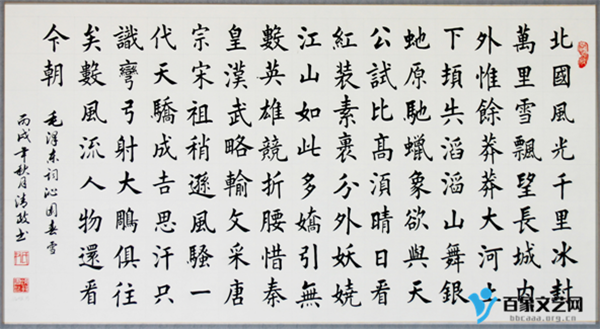 北國風光千里冰封
萬里雪飄望長城内
外惟餘莽莽大河上
下頓失滔滔山舞銀
虵原馳蠟象欲與天
公試比髙湏晴日看
紅装素裹分外妖嬈
江山如此多嬌引無
數英雄競折腰惜秦
皇漢武略輸文采唐
宗宋祖稍遜風騷一
代天驕成吉思汗只
識彎弓射大鵰俱往
矣數風流人物還看
今朝
毛澤东詞沁园春雪
丙戌年秋月政书
百家文艺网
bbcaaa.org.cn